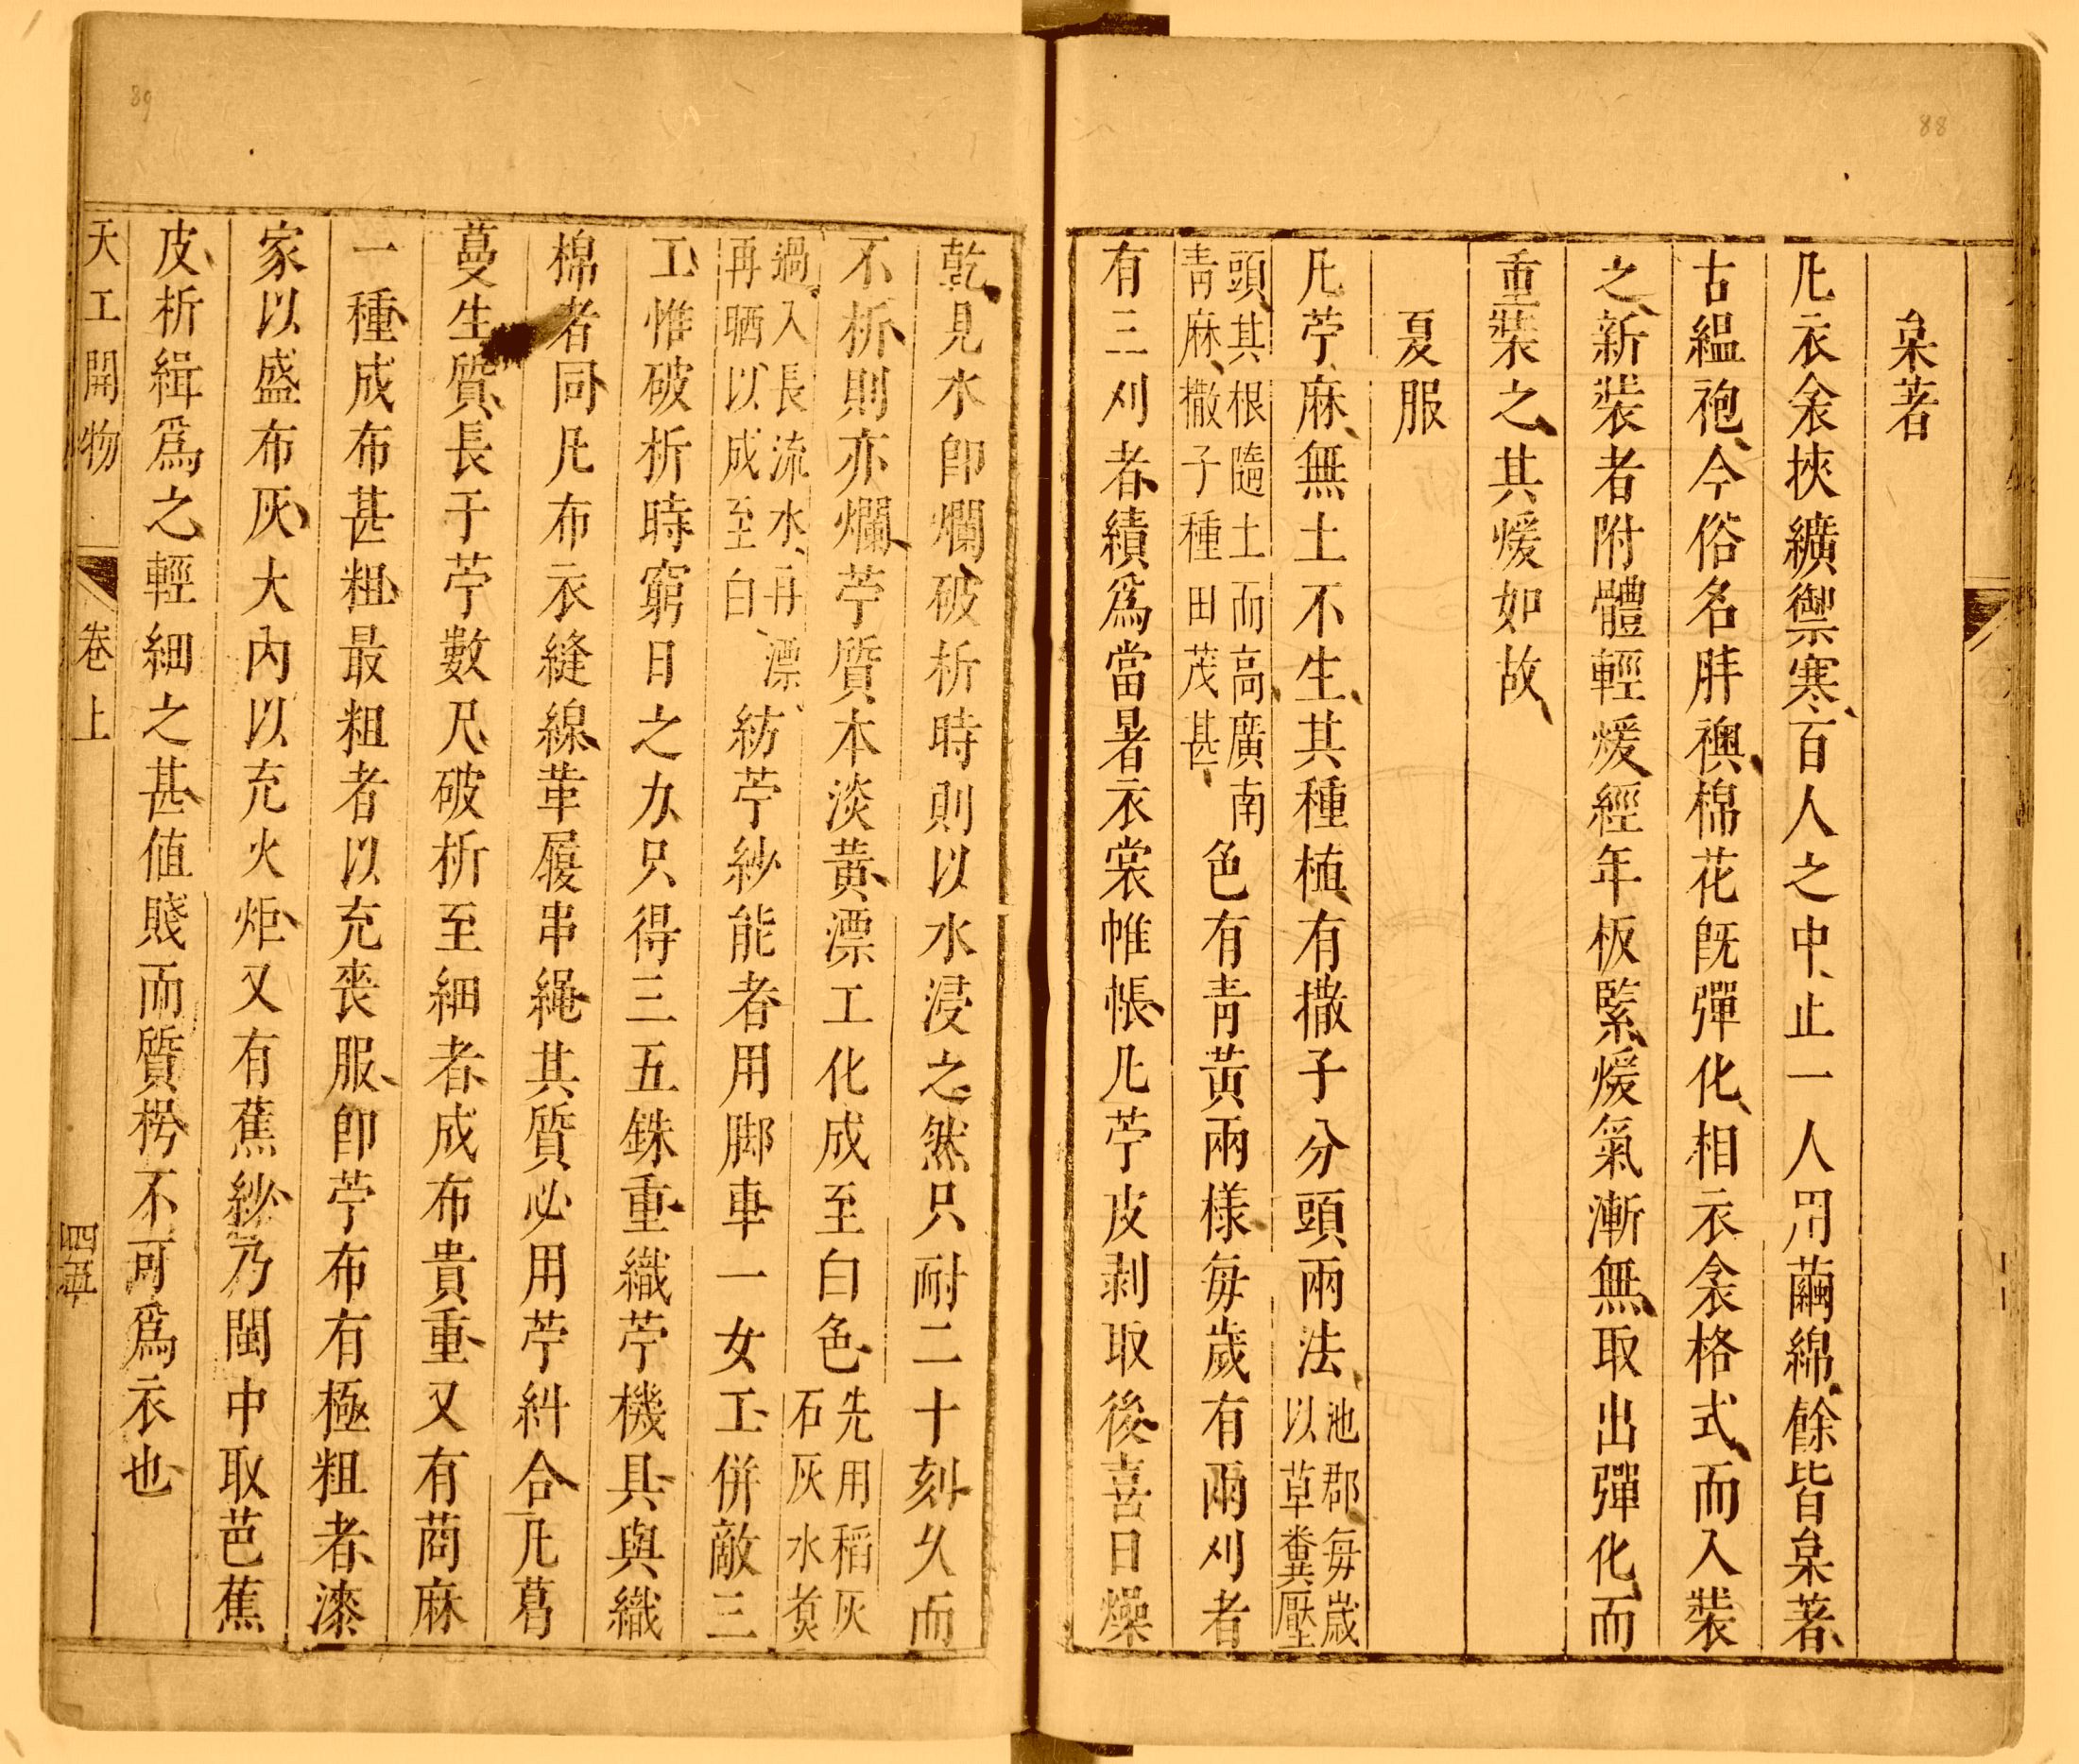 88
枲著
凡衣衾挾纊禦寒百人之中止一人用繭綿餘皆枲著
古縕袍今俗名胖襖棉花既彈化相衣衾格式而入裝
之新裝者附體輕煖經年板緊煖氣漸無取出彈化而
重裝之其煖如故
夏服
凡苧麻無土不生其種植有撒子分頭兩法池郡每歲以草糞壓
頭其根隨土而高廣南青麻撒子種田茂甚色有青黃兩樣每歲有兩刈者
有三刈者績爲當暑衣裳帷帳凡苧皮剥取後喜日燥
89
乾見水卽爛破析時則以水浸之然只耐二十刻久而
不析則亦爛苧質本淡黃漂工化成至白色先用稻灰石灰水煑
過入長流水再漂再晒以成至白紡苧紗能者用脚車一女工併敵三
工惟破析時窮日之力只得三五銖重織苧機具與織
棉者同凡布衣縫線革履串繩其質必用苧糾合凡葛
蔓生質長于苧數尺破析至細者成布貴重又有苘麻
一種成布甚粗最粗者以充喪服卽苧布有極粗者漆
家以盛布灰大內以充火炬又有蕉紗乃閩中取芭蕉
皮析緝爲之輕細之甚值賤而質枵不可爲衣也
天工開物 卷上 四五